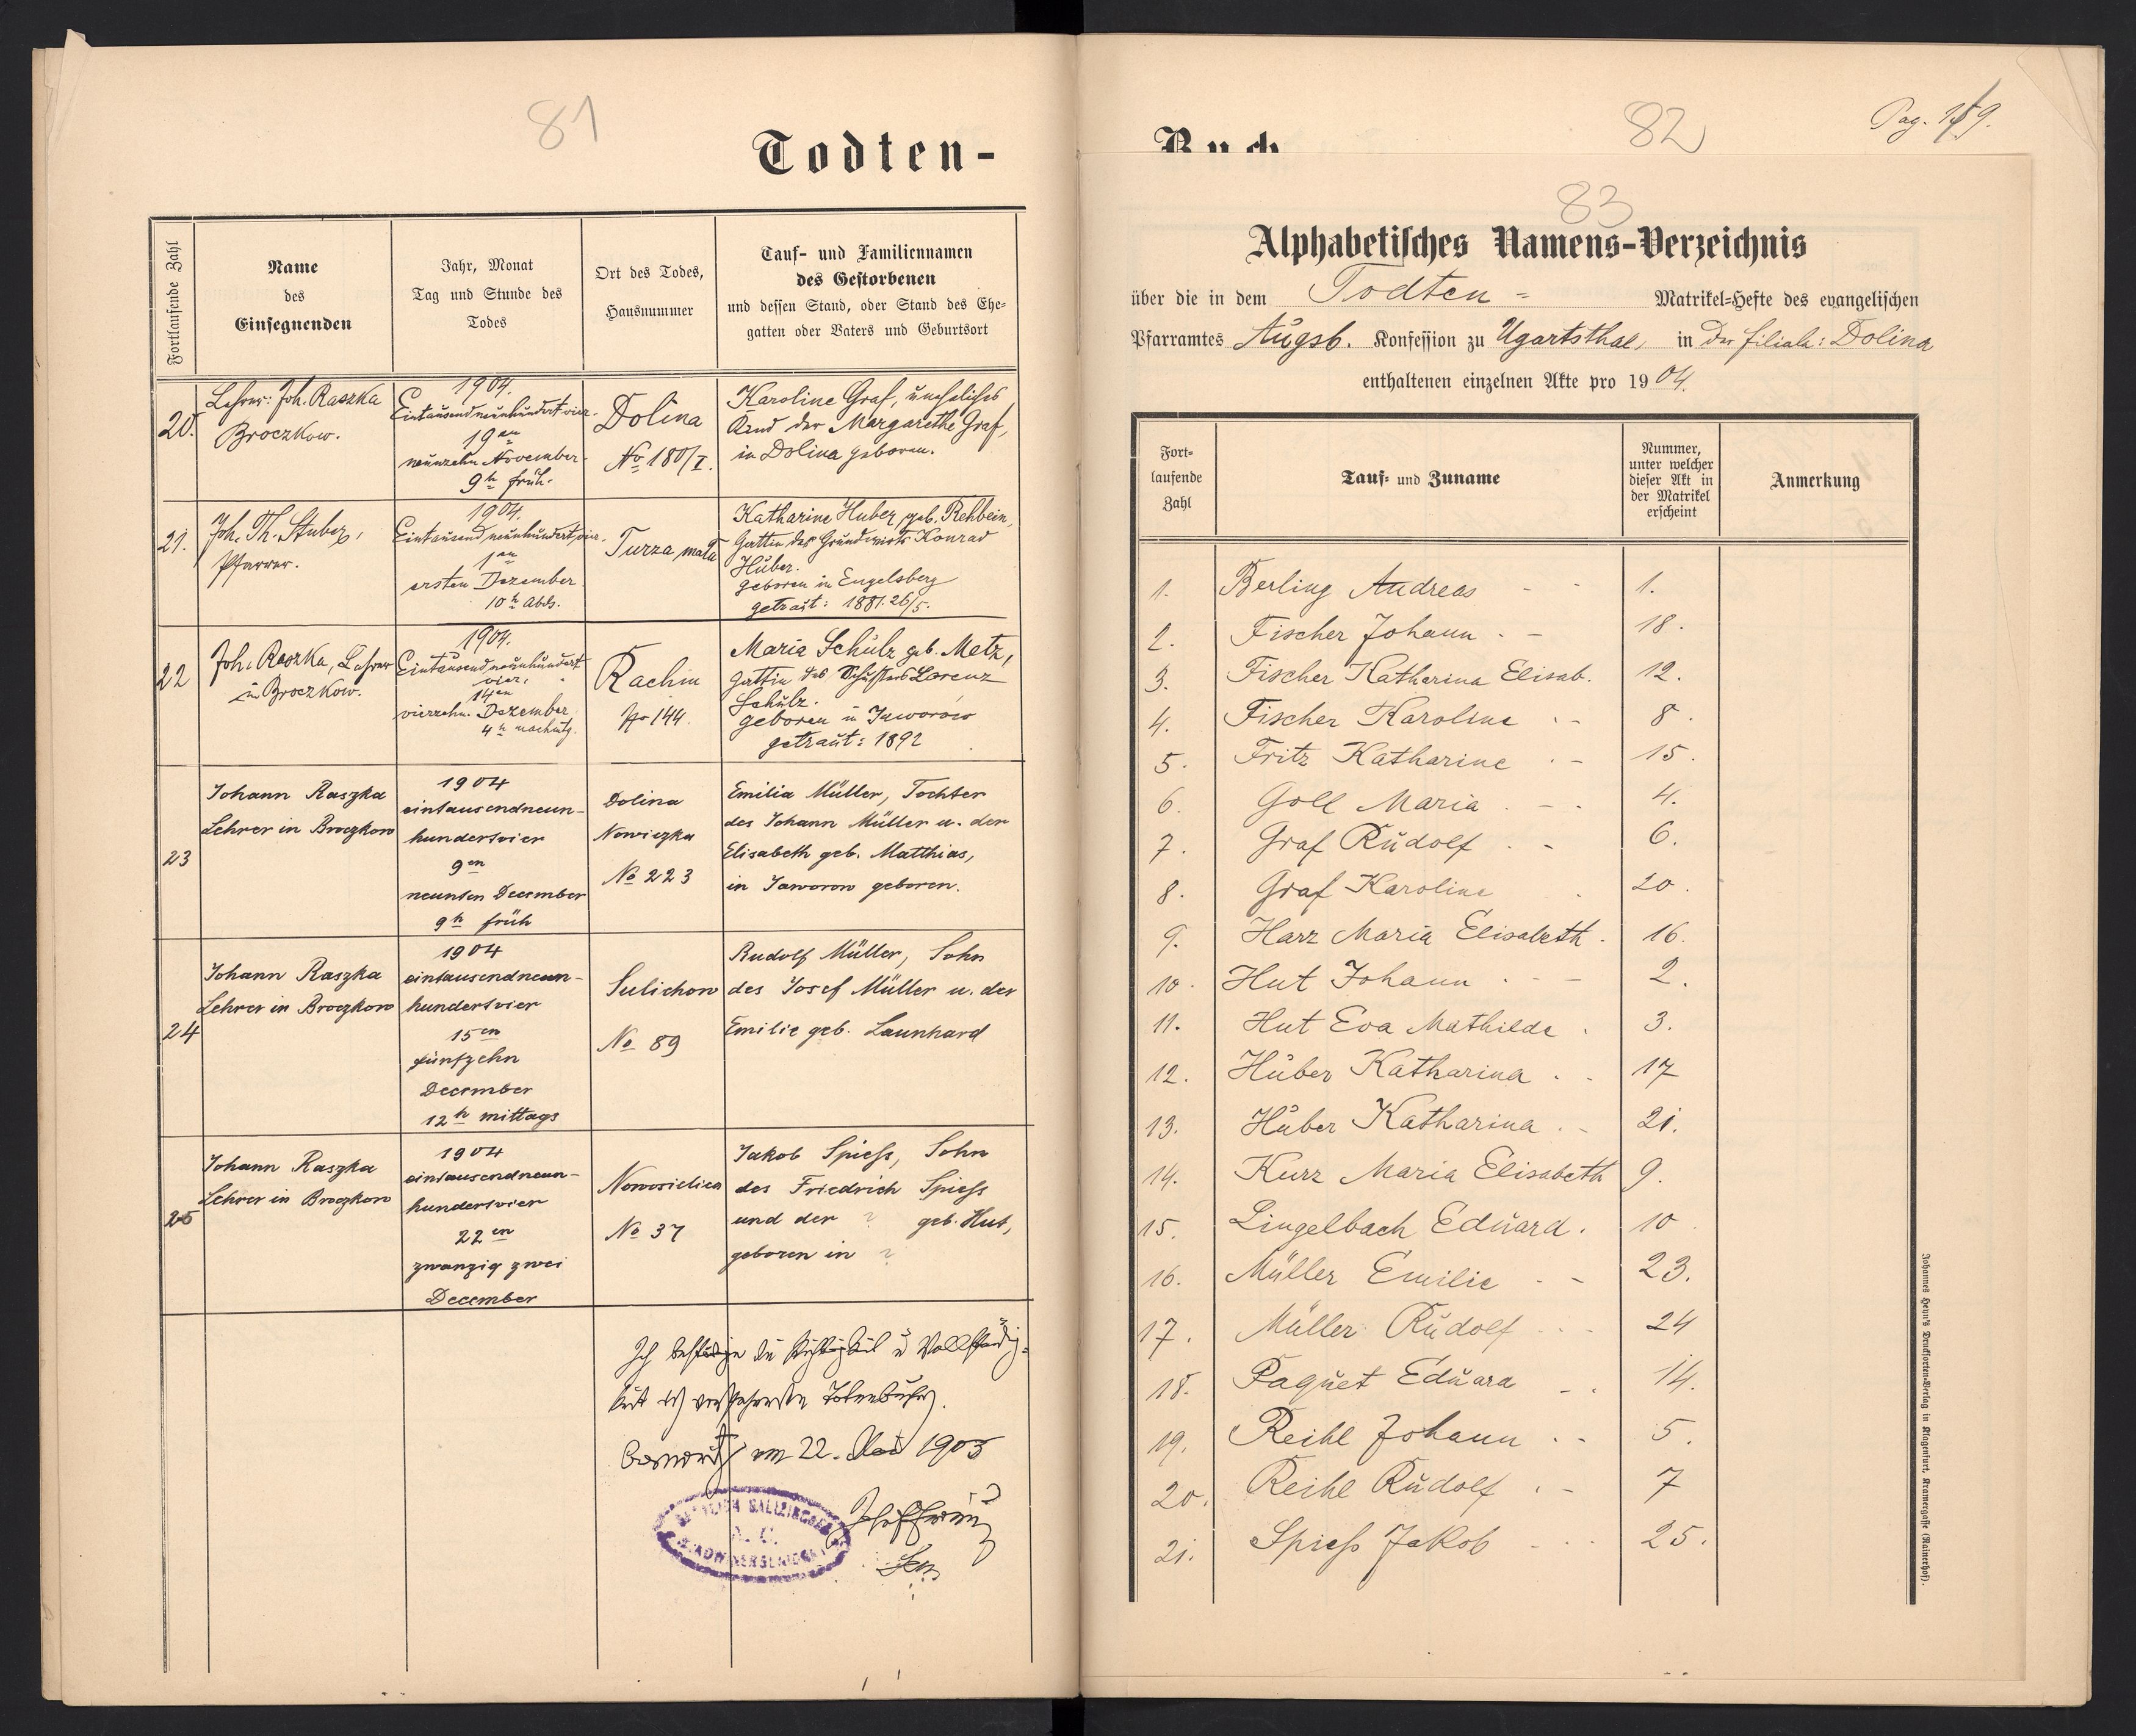 81
Todten-
Fortlaufende Zahl
Name
des
Einsegnenden
Jahr, Monat
Tag und Stunde des
Todes
Ort des Todes,
Hausnummer
Tauf- und Familiennamen
des Gestorbenen
und dessen Stand, oder Stand des Ehe-
gatten oder Vaters und Geburtsort
20.
Lehrer: Joh. Raszka
Broczkow.
1904.
Eintausendneunhundertvier.
19en
neunzehn November
9h früh.
Dolina
No 180/I.
Karoline Graf, uneheliches
Kind der Margarethe Graf,
in Dolina geboren.
21.
Joh. Th. Stuber,
Pfarrer.
1904.
Eintausendneunhundertvier.
1en
ersten Dezember
10h Abds.
Turza mała
Katharine Huber, geb. Rehbein,
Gattin des Grundwirts Konrad
Huber.
geboren in Engelsberg
getraut: 1881.26/5.
22
Joh. Raszka, Lehrer
in Broczkow.
1904.
Eintausendneunhundert
vier,
14en
vierzehn. Dezember
4h nachmtg.
Rachin
No 144.
Maria Schulz geb. Metz,
Gattin des Schusters Lorenz
Schulz.
geboren in Jaworow
getraut: 1892
23
Johann Raszka
Lehrer in Broczkow
1904
eintausendneun-
hundertvier
9en
neunten December
9h früh
Dolina
Nowiczka
No 223
Emilia Müller, Tochter
des Johann Müller u. der
Elisabeth geb. Matthias,
in Jaworow geboren.
24
Johann Raszka
Lehrer in Broczkow
1904
eintausendneun-
hundertvier
15en
fünfzehn
December
12h mittags
Sulichow
No 89
Rudolf Müller, Sohn
des Josef Müller u. der
Emilie geb. Launhard
25
Johann Raszka
Lehrer in Broczkow
1904
eintausendneun-
hundertvier
22en
zwanzig zwei
December
Nowosielica
No 37
Jakob Spiess, Sohn
des Friedrich Spiess
und der ? geb. Hut,
geboren in ?
Ich bestätige die Richtigkeit u Vollständig-
keit des vorstehenden Totenbuches.
am 22. Mai 1905
A. C.
Sen
Buch
82
Pag. 159.
83
Alphabetisches Namens-Verzeichnis
über die in dem Todten- Matrikel-Hefte des evangelischen
Pfarramtes Augsb. Konfession zu Ugartsthal, in der filiale: Dolina
enthaltenen einzelnen Akte pro 1904.
Fort-
laufende
Zahl
Tauf- und Zuname
Nummer,
unter welcher
dieser Akt in
der Matrikel
erscheint
Anmerkung
1. Berling Andreas - 1.
2. Fischer Johann . - 18.
3. Fischer Katharina Elisab. 12.
4. Fischer Karoline . - 8.
5. Fritz Katharine . - 15.
6. Goll Maria . - . 4.
7. Graf Rudolf . - 6.
8. Graf Karoline . 20.
9. Harz Maria Elisabeth . 16.
10. Hut Johann . - - 2.
11. Hut Eva Mathilde . 3.
12. Huber Katharina . . 17
13. Huber Katharina . - 21.
14. Kurz Maria Elisabeth 9.
15. Lingelbach Eduard . 10.
16. Müller Emilie . - 23.
17. Müller Rudolf . . . 24
18. Paquet Eduard - . 14.
19. Reihl Johann . . 5.
20. Reihl Rudolf . - 7
21. Spiess Jakob - . . 25.
Johannes Heyn's Drucksorten-Verlag in Klagenfurt, Kramergasse (Rainerhof).